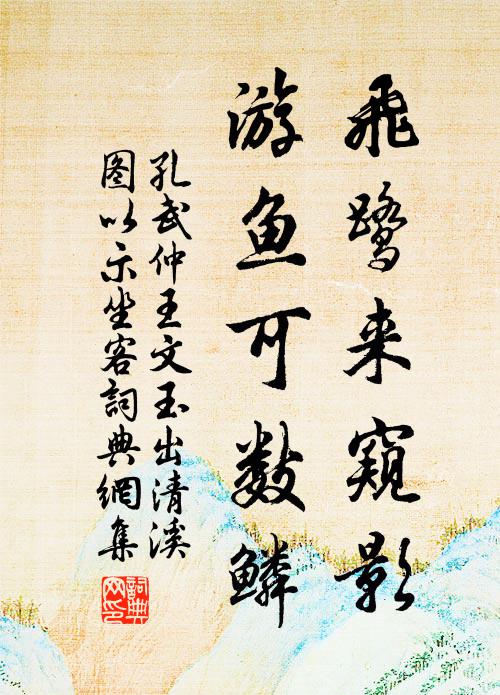 飛鷺来窺影
游鱼可数鱗
孔武仲王文玉出清溪
图以示坐客詞典網集
詞典網印